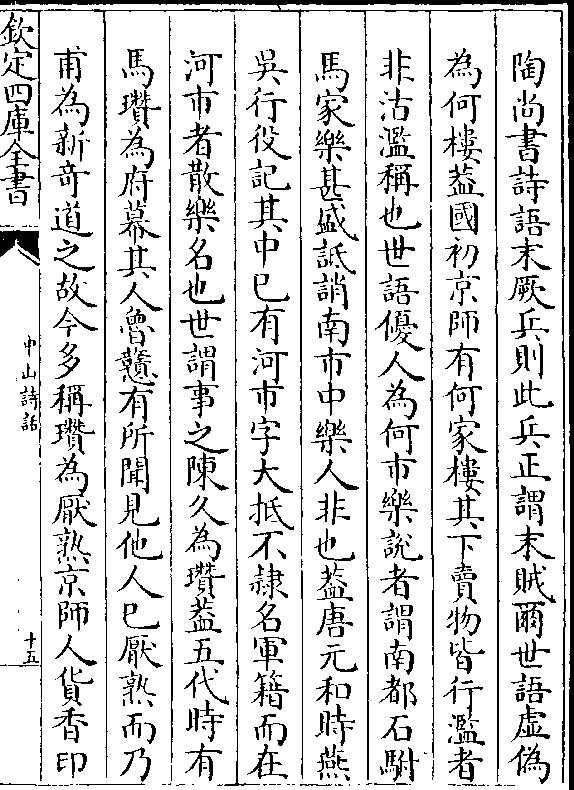 陶尚書詩語末厥兵則此兵正謂末賊爾世語虛偽
為何樓葢國初京師有何家樓其下賣物皆行濫者
非沽濫稱也世語優人為何市樂說者謂南都石駙
馬家樂甚盛詆誚南市中樂人非也葢唐元和時燕
吳行役記其中已有河市字大抵不隷名軍籍而在
河市者散樂名也世謂事之陳久為瓚葢五代時有
馬瓚為府幕其人魯戇有所聞見他人已厭熟而乃
甫為新奇道之故今多稱瓚為厭熟京師人貨香印
欽定四庫全書
中山詩話
十五